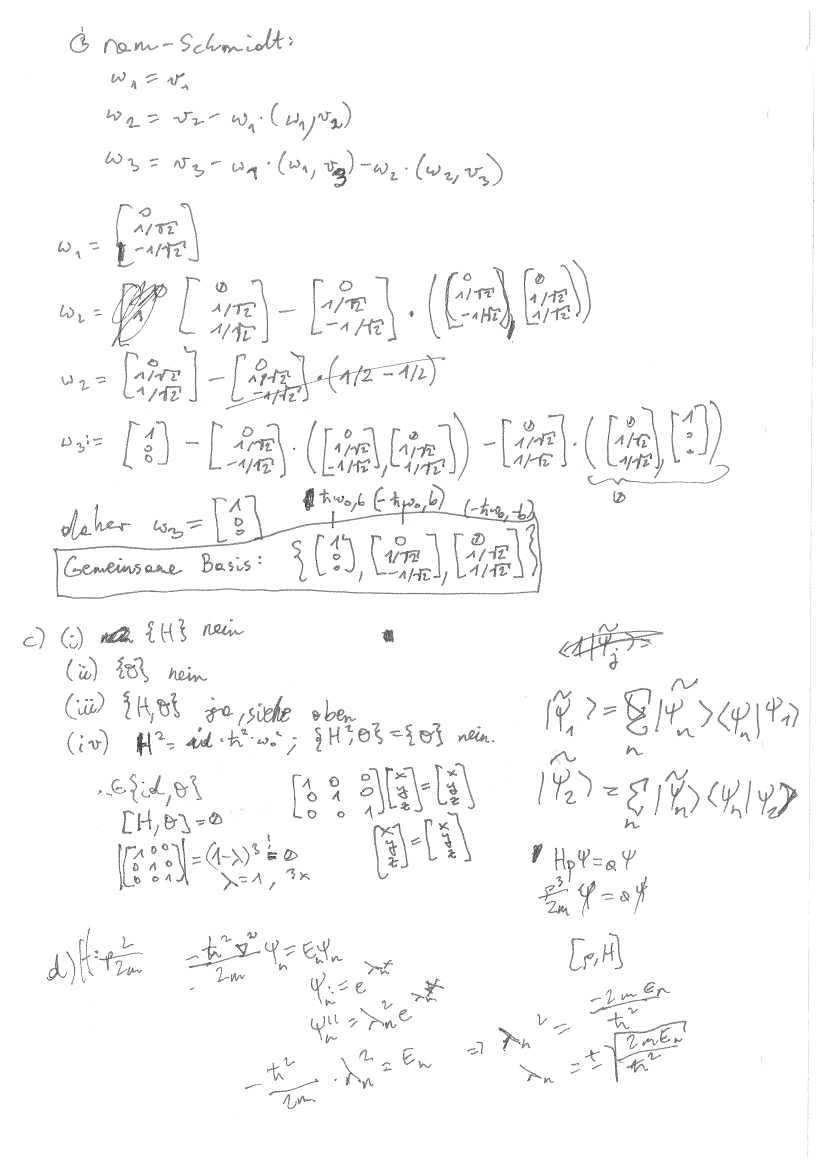 Gram-Schmidt:
w₁ = v₁
w₂ = v₂ - w₁·(w₁,v₂)
w₃ = v₃ - w₁·(w₁,v₃) - w₂·(w₂,v₃)
w₁ = [0; 1/√2; -1/√2]
w₂ = [0; 1/√2; 1/√2] - [0; 1/√2; -1/√2]·([0; 1/√2; -1/√2],[0; 1/√2; 1/√2])
w₂ = [0; 1/√2; 1/√2] - [0; 1/√2; -1/√2]·(1/2 - 1/2)
w₃ := [1; 0; 0] - [0; 1/√2; -1/√2]·([0; 1/√2; -1/√2],[0; 1/√2; 1/√2]) - [0; 1/√2; 1/√2]·([0; 1/√2; 1/√2],[1; 0; 0])
0
ħω₀,b (-ħω₀,b) (-ħω₀,-b)
daher w₃ = [1; 0; 0]
Gemeinsame Basis: {[1; 0; 0],[0; 1/√2; -1/√2],[0; 1/√2; 1/√2]}
c) (i) {H} nein
(ii) {θ} nein
(iii) {H,θ} ja, siehe oben
(iv) H² = id·ħ²·ω₀²; {H²,θ} = {θ} nein.
|ψ̃₁⟩ = Σₙ |ψ̃ₙ⟩⟨ψₙ|ψ₁⟩
|ψ̃₂⟩ = Σₙ |ψ̃ₙ⟩⟨ψₙ|ψ₂⟩
∈{id,θ} [1 0 0; 0 1 0; 0 0 1][x; y; z] = [x; y; z]
[H,θ] = 0
|[1 0 0; 0 1 0; 0 0 1]| = (1-λ)³ = 0 [x; y; z] = [x; y; z]
λ = 1, 3x
Hpψ = aψ
p³/2m ψ = aψ
[p,H]
d) H = p²/2m -ħ²∇²/2m ψₙ = Eₙψₙ
ψₙ := e^λₙx
ψₙ'' = λₙ² e^λₙx
-ħ²/2m · λₙ² = Eₙ ⇒ λₙ² = -2mEₙ/ħ²
λₙ = ±√(2mEₙ/ħ²)